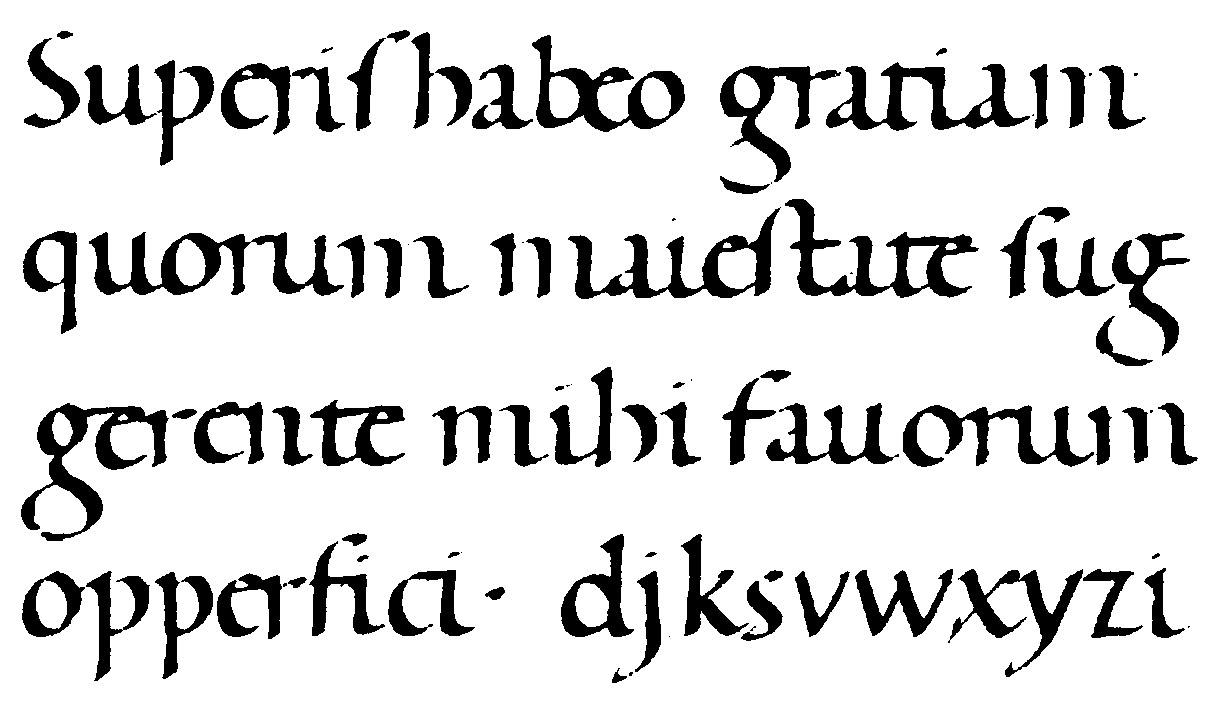 Superiſ habeo gratiam
quorum maieſtate ſug
gerente mihi fauorum
opperfici· djksvwxyzi